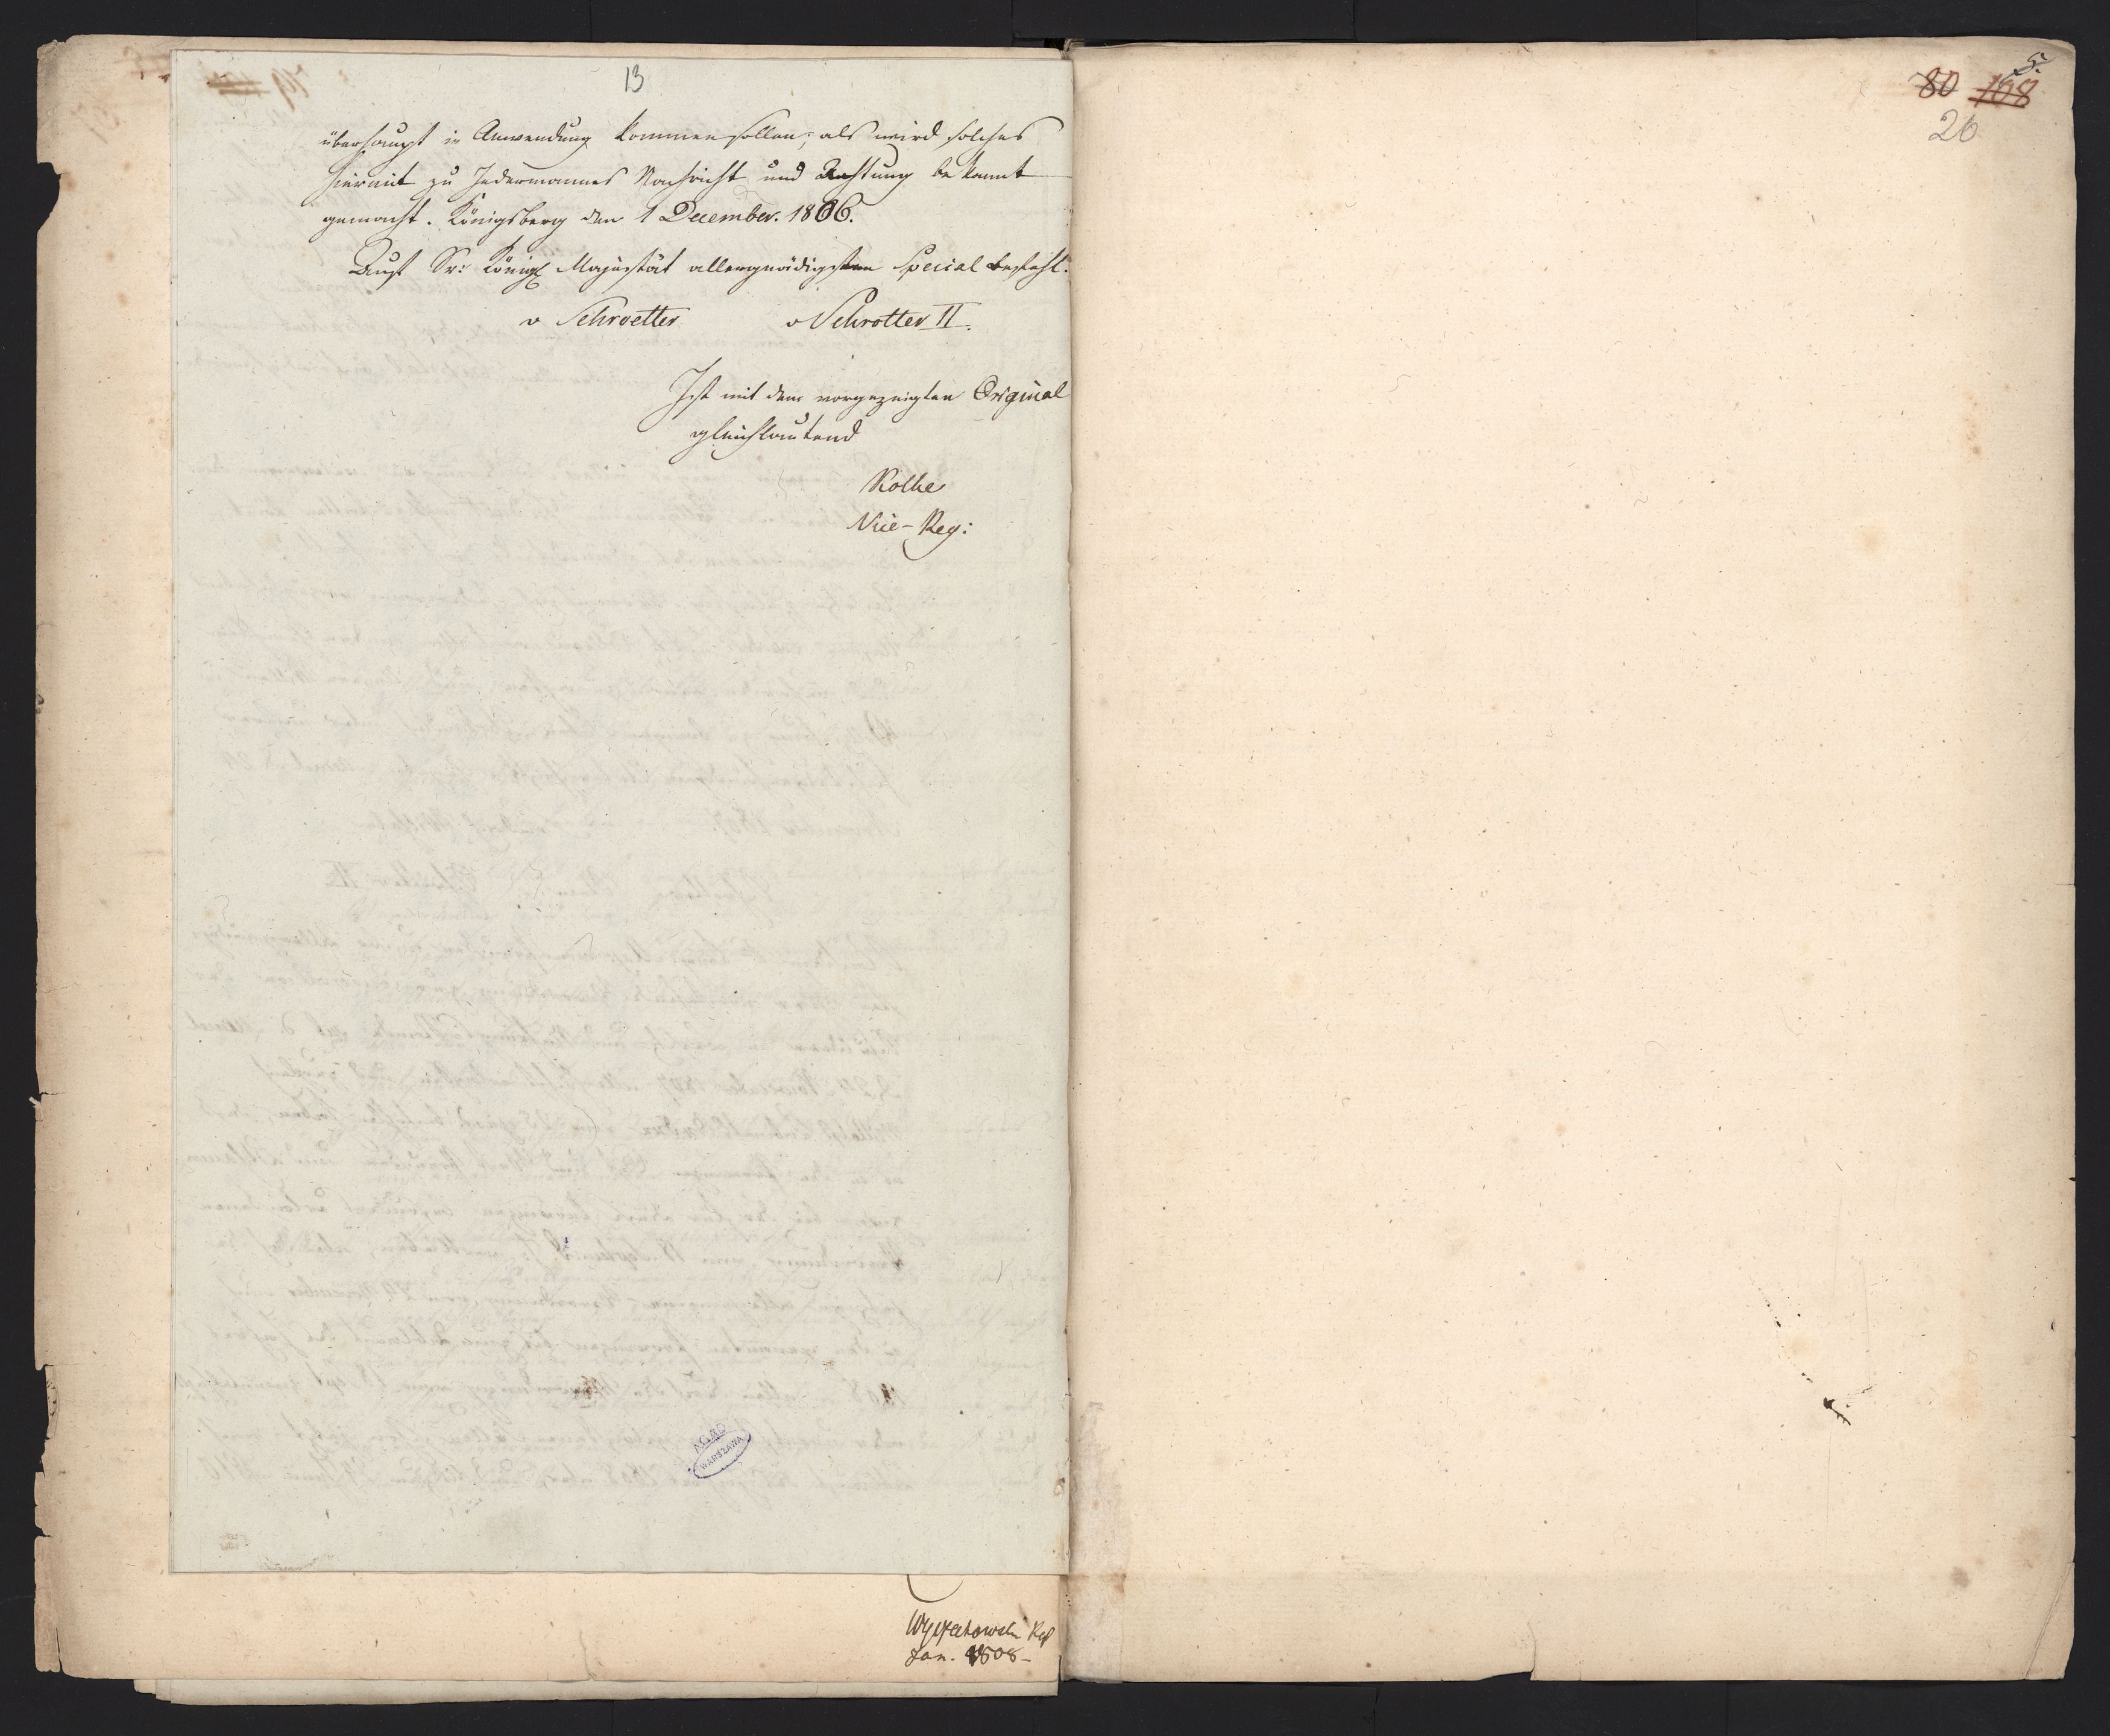 13
überhaupt in Anwendung kommen sollen; als wird solches
hiermit zu Jedermannes Nachricht und Achtung bekannt
gemacht. Königsberg den 1 December. 1806.
Auf Sr: Königl Majestät allergnädigsten Special Befehl.
v Schroetter v Schrötter II.
Ist mit dem vorgezeigten Original
gleichlautend
Rothe
Vice-Reg:
AGAD
WARSZAWA
Jan. 1808-
80 108
5.
26